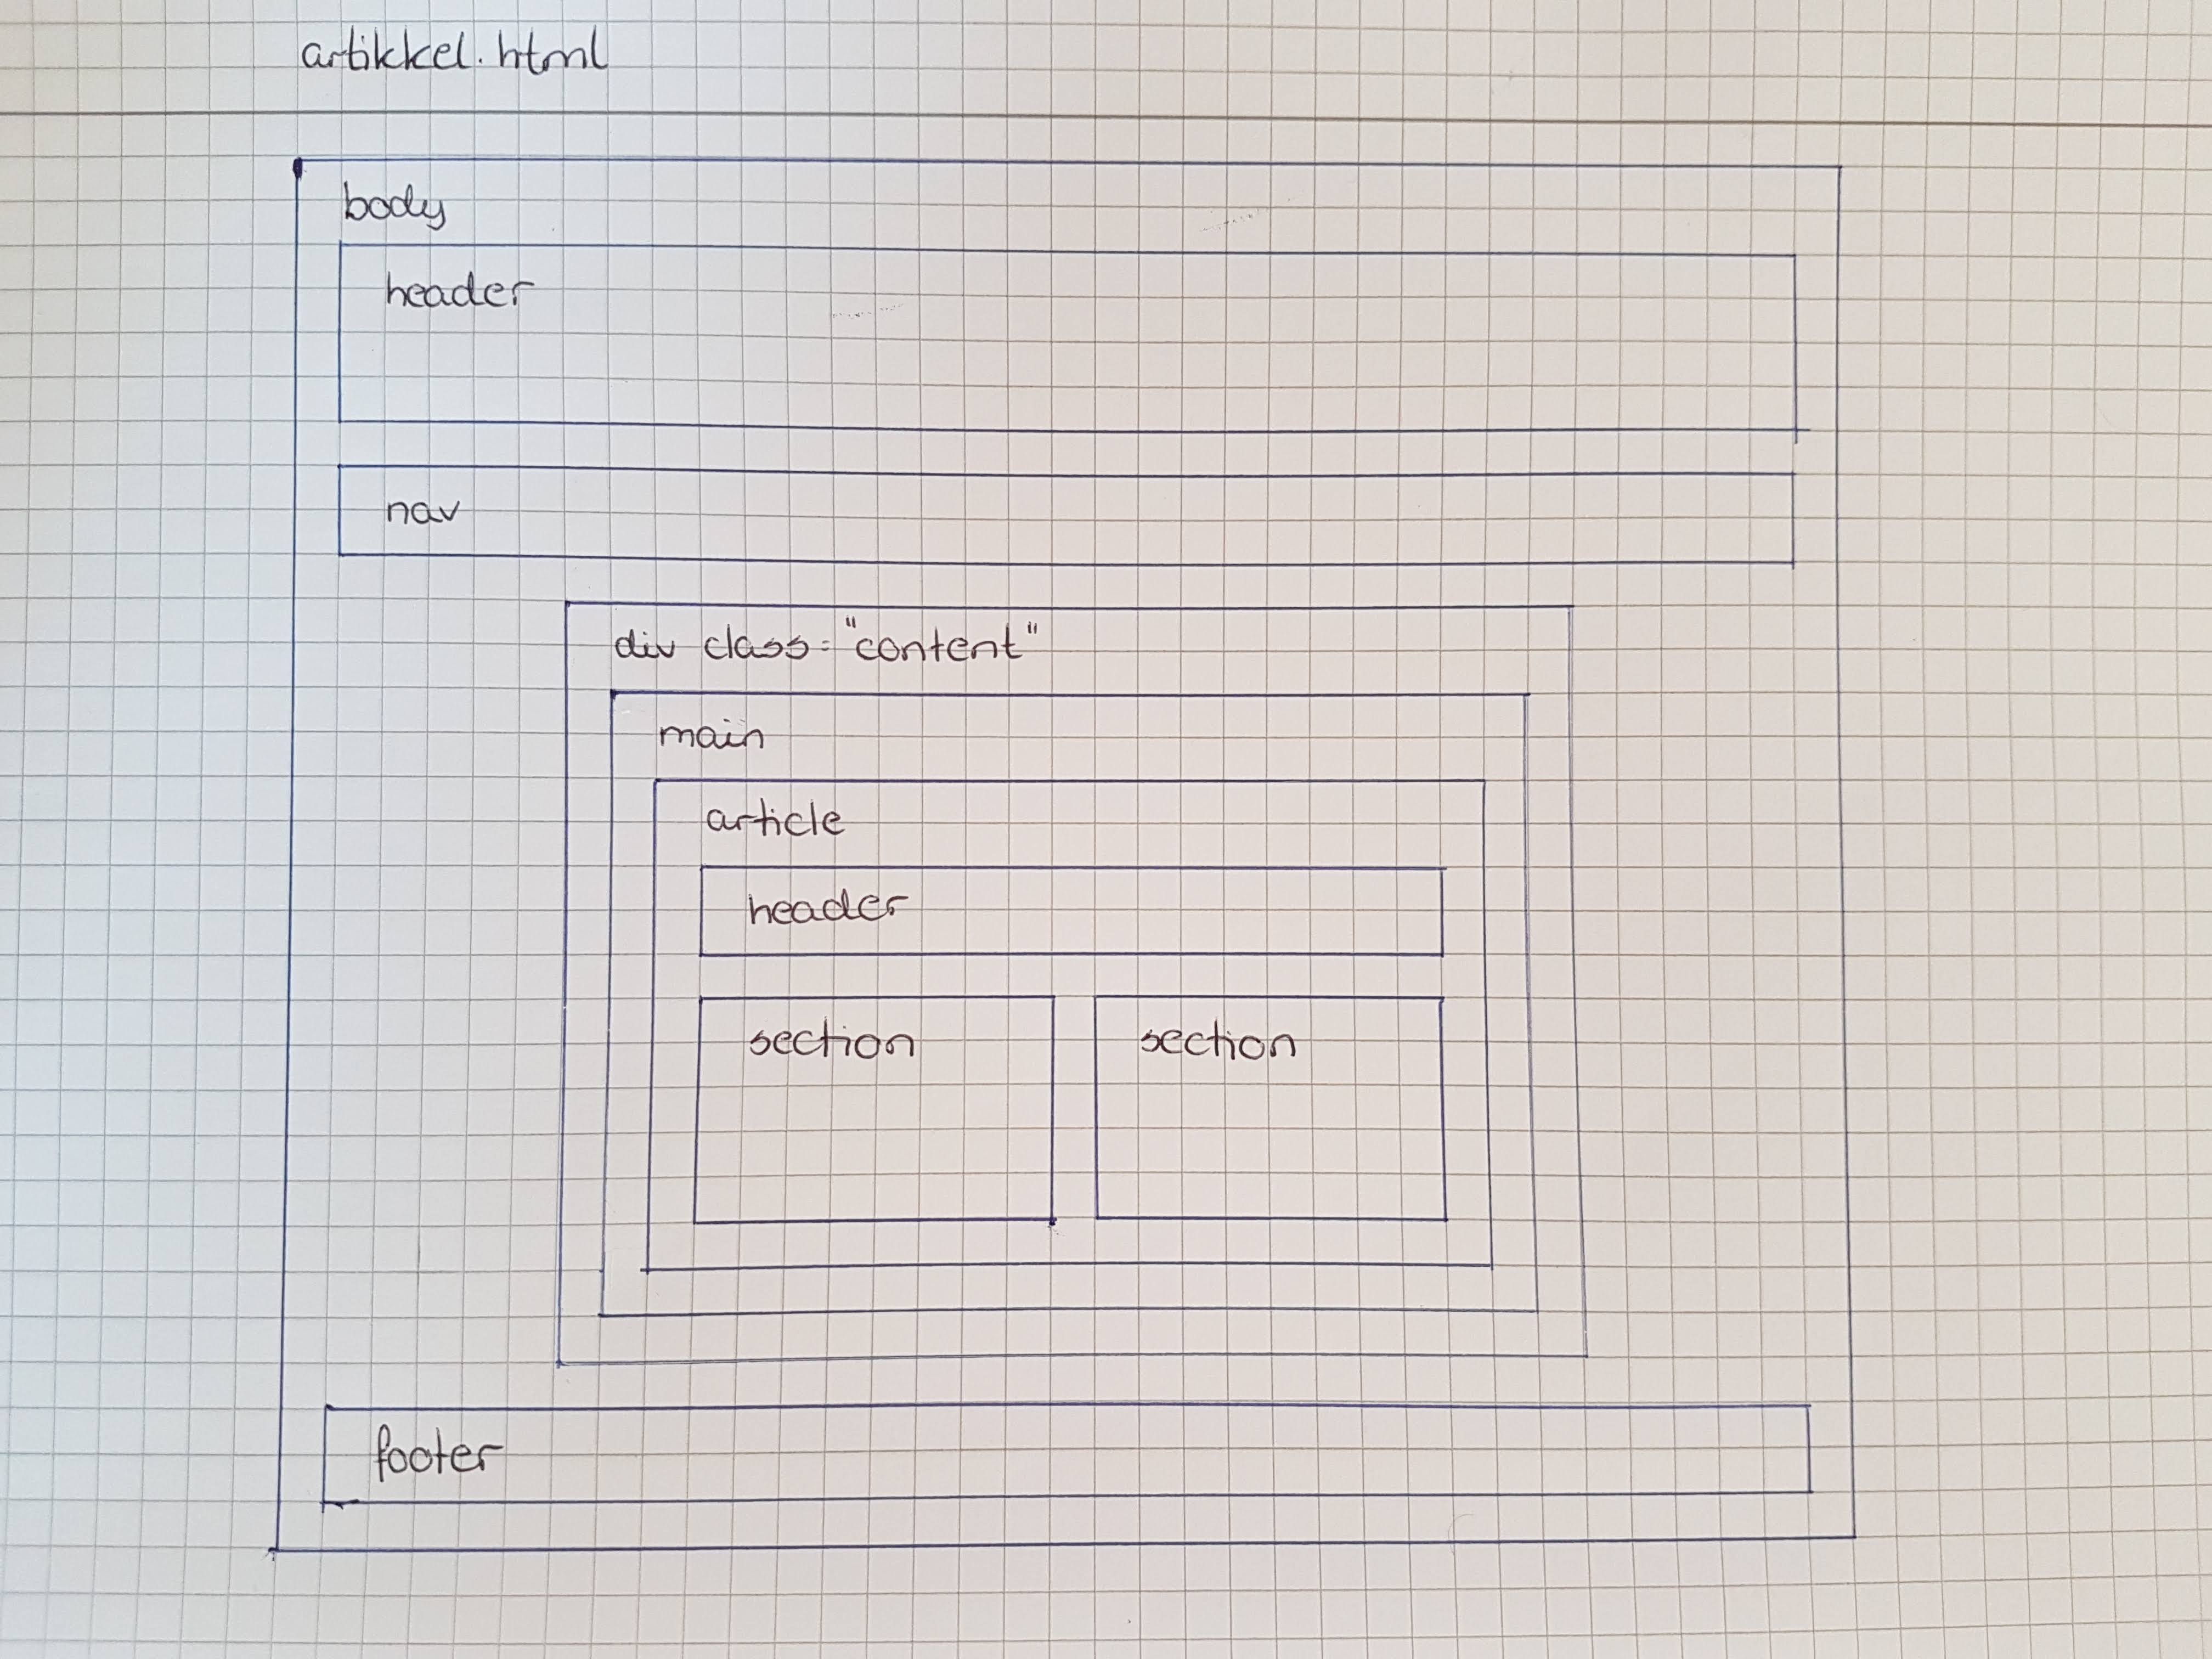 artikkel.html
body
header
nav
div class="content"
main
article
header
section section
footer